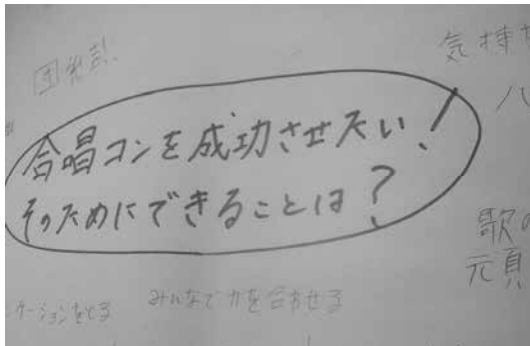 気持
合唱コンを成功させたい!
そのためにできることは?
歌の
ーションをとる
みんなで力を合わせる